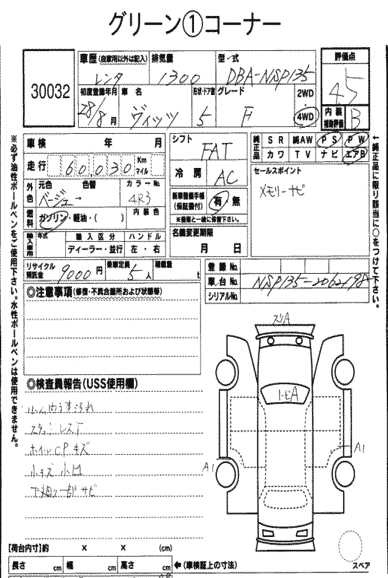 グリーン①コーナー
30032
車歴(自家用以外は記入) 排気量 型・式 評価点
レンタ 1300 DBA-NSP135 4.5
初度登録年月 車名 形状・ドア数 グレード 2WD・4WD 内装補助評価
28/8月 ヴィッツ 5 F B
車検 年 月 シフト 純正品 SR 純AW PS PW
FAT カワ TV ナビ エアB
走行 60030 Km マイル
冷房 AC
セールスポイント
メモリーナビ
外色 元色 色替 カラーNo.
ベージュ 4R3
燃料 ガソリン・軽油・( ) 内装色
新車整備手帳(保証書付) 有・無
※車検と一緒に保管下さい。
輸入車用 年式 輸入区分 ハンドル
ディーラー・並行 左・右
名義変更期限
月 日
リサイクル預託金 9000円 乗車定員 5人 積載量 t
登録No.
車台No. NSP135-2062198
シリアルNo.
◎注意事項(修復・不具合箇所および状態等)
◎検査員報告(USS使用欄)
スタッドレスT
ホイルCPキズ
小キズ 小凹
下廻り一部サビ
A
A
A1
A1
スペア
【荷台内寸】約 × × (cm)
長さ cm 幅 cm 高さ cm ←(車検証上の寸法)
※必ず油性ボールペンをご使用下さい。水性ボールペンは使用できません。
純正品に限り該当に○をつけて下さい。